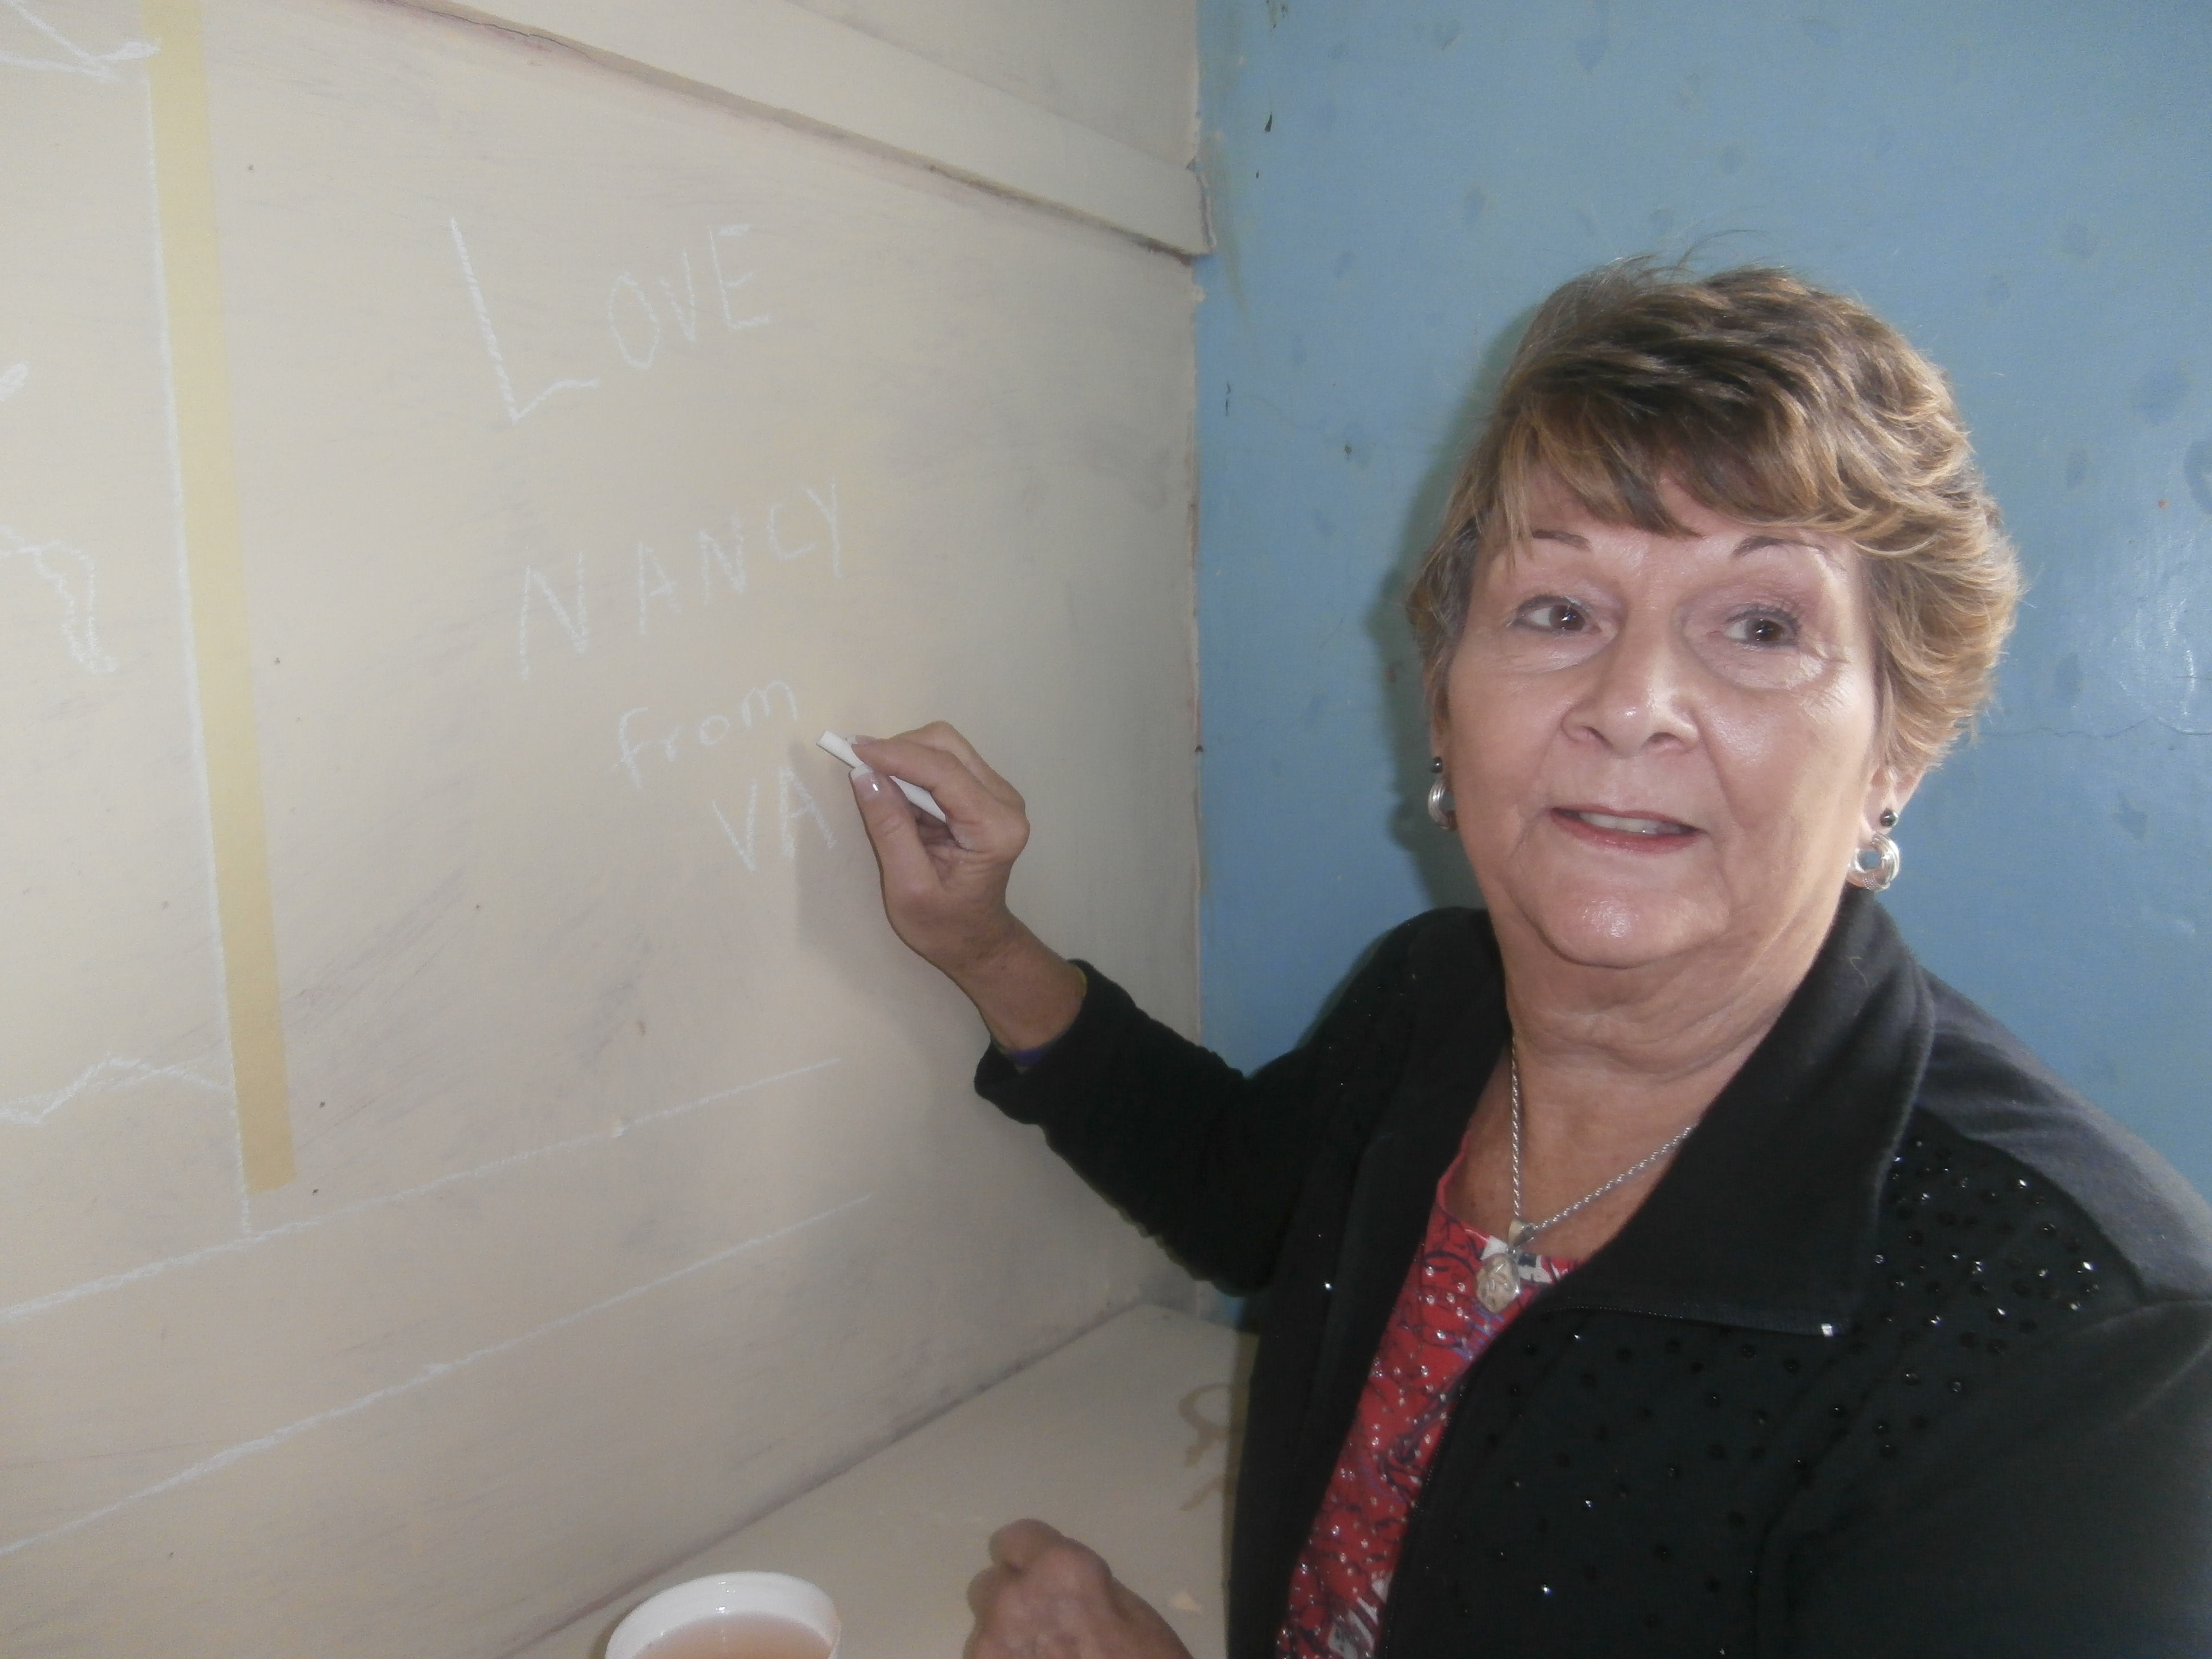 LOVE
NANCY
from
VA